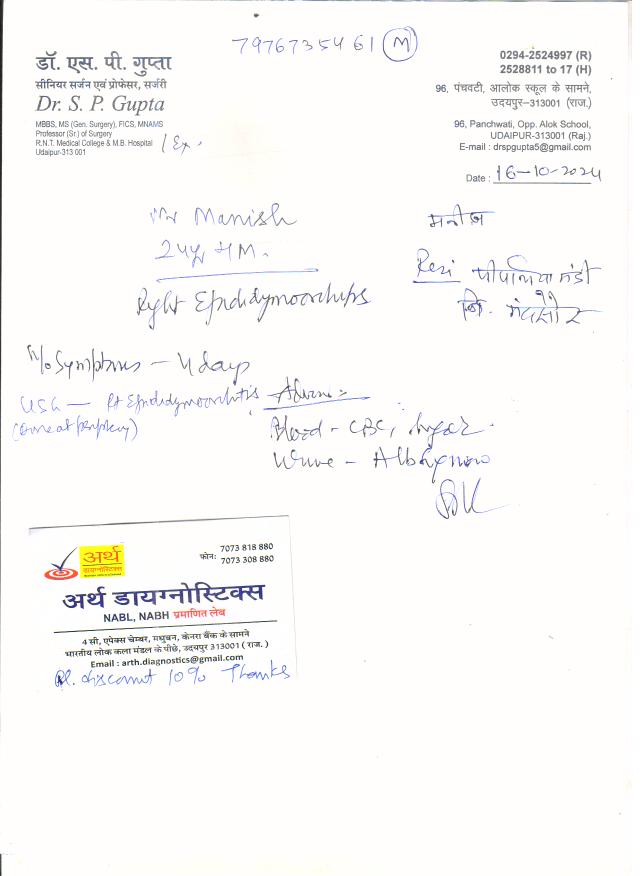 7976735461 (M)
डॉ. एस. पी. गुप्ता
सीनियर सर्जन एवं प्रोफेसर, सर्जरी
Dr. S. P. Gupta
MBBS, MS (Gen. Surgery), FICS, MNAMS
Professor (Sr.) of Surgery
R.N.T. Medical College & M.B. Hospital / Ex.
Udaipur-313 001
0294-2524997 (R)
2528811 to 17 (H)
96, पंचवटी, आलोक स्कूल के सामने,
उदयपुर–313001 (राज.)
96, Panchwati, Opp. Alok School,
UDAIPUR-313001 (Raj.)
E-mail : drspgupta5@gmail.com
Date : 16-10-2024
Mr Manish
M.
Right Epididymoorchitis
मनीष
Resi पीपलिया मंडी
जि. मंदसौर
Symptoms - 4 days
USG - Rt Epididymoorchitis
Advise
Blood - CBC, Sugar
Urine -
अर्थ
डायग्नोस्टिक्स
फोन: 7073 818 880
7073 308 880
अर्थ डायग्नोस्टिक्स
NABL, NABH प्रमाणित लेब
4 सी, एपेक्स चेम्बर, मधुबन, केनरा बैंक के सामने
भारतीय लोक कला मंडल के पीछे, उदयपुर 313001 ( राज. )
Email : arth.diagnostics@gmail.com
Pl. discount 10% Thanks